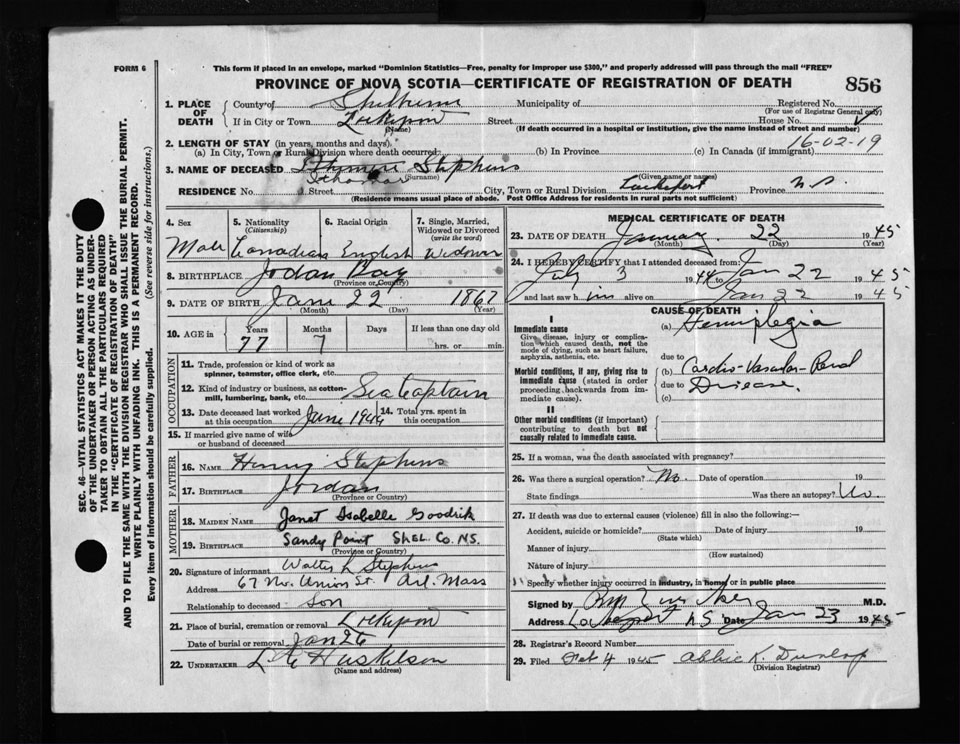 FORM 6
This form if placed in an envelope, marked "Dominion Statistics—Free, penalty for improper use $300," and properly addressed will pass through the mail "FREE"
PROVINCE OF NOVA SCOTIA—CERTIFICATE OF REGISTRATION OF DEATH
856
1. PLACE OF DEATH
County of Shelburne Municipality of Registered No.
(For use of Registrar General only)
If in City or Town Lockeport Street House No.
(Name) (If death occurred in a hospital or institution, give the name instead of street and number)
2. LENGTH OF STAY (in years, months and days).
(a) In City, Town or Rural Division where death occurred (b) In Province (c) In Canada (if immigrant)
16-02-19
3. NAME OF DECEASED Stephens
(Surname) (Given name or names)
RESIDENCE No. Street City, Town or Rural Division Lockeport Province N.S.
(Residence means usual place of abode. Post Office Address for residents in rural parts not sufficient)
4. Sex Male
5. Nationality (Citizenship) Canadian
6. Racial Origin English
7. Single, Married, Widowed or Divorced (write the word) Widower
8. BIRTHPLACE Jordan Bay
(Province or Country)
9. DATE OF BIRTH June 22 1867
(Month) (Day) (Year)
10. AGE in Years 77 Months 7 Days If less than one day old hrs. or min.
OCCUPATION
11. Trade, profession or kind of work as spinner, teamster, office clerk, etc.
12. Kind of industry or business, as cotton-mill, lumbering, bank, etc. Sea Captain
13. Date deceased last worked at this occupation June 1944
14. Total yrs. spent in this occupation
15. If married give name of wife or husband of deceased
FATHER
16. NAME Henry Stephens
17. BIRTHPLACE Jordan
(Province or Country)
MOTHER
18. MAIDEN NAME Janet Isabelle Goodick
19. BIRTHPLACE Sandy Point Shel. Co. N.S.
(Province or Country)
20. Signature of informant Walter L Stephens
Address 67 No. Union St. Arl. Mass
Relationship to deceased Son
21. Place of burial, cremation or removal Lockeport
Date of burial or removal Jan 26
22. UNDERTAKER Huskilson
(Name and address)
MEDICAL CERTIFICATE OF DEATH
23. DATE OF DEATH January 22 1945
(Month) (Day) (Year)
24. I HEREBY CERTIFY that I attended deceased from:
July 3 1944 to Jan 22 1945
and last saw him alive on Jan 22 1945
CAUSE OF DEATH
I
Immediate cause (a) Hemiplegia
Give disease, injury or complication which caused death, not the mode of dying, such as heart failure, asphyxia, asthenia, etc.
due to
Morbid conditions, if any, giving rise to immediate cause (stated in order proceeding backwards from immediate cause).
(b) Cardio-Vascular-Renal
due to Disease.
(c)
II
Other morbid conditions (if important) contributing to death but not causally related to immediate cause.
25. If a woman, was the death associated with pregnancy?
26. Was there a surgical operation? No. Date of operation 19
State findings Was there an autopsy? No.
27. If death was due to external causes (violence) fill in also the following:—
Accident, suicide or homicide? Date of injury 19
(State which)
Manner of injury
(How sustained)
Nature of injury
Specify whether injury occurred in industry, in home, or in public place
Signed by M.D.
Address Lockeport N S Date Jan 23 1945
28. Registrar's Record Number
29. Filed Feb 4 1945 Abbie K. Dunlop
(Division Registrar)
SEC. 46—VITAL STATISTICS ACT MAKES IT THE DUTY
OF THE UNDERTAKER OR PERSON ACTING AS UNDER-
TAKER TO OBTAIN ALL THE PARTICULARS REQUIRED
IN THE "CERTIFICATE OF REGISTRATION OF DEATH"
AND TO FILE THE SAME WITH THE DIVISION REGISTRAR WHO SHALL ISSUE THE BURIAL PERMIT.
WRITE PLAINLY WITH UNFADING INK. THIS IS A PERMANENT RECORD.
Every item of information should be carefully supplied. (See reverse side for instructions.)